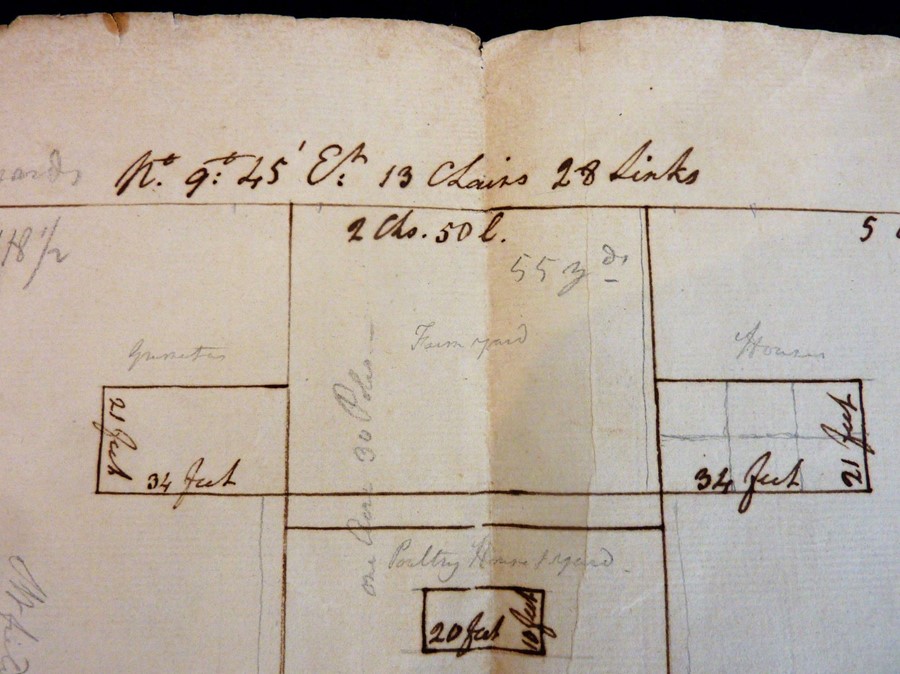 No. 9:° 45' Et: 13 Chains 28 Links
2 Chs. 50 l.
5
55 yds
Farm yard
Houses
21 feet
34 feet
one Acre 30 Poles
34 feet
21 feet
Poultry House & yard
20 feet
10 feet